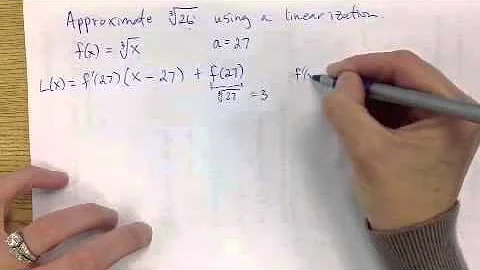 Approximate ∛26 using a linearization.
f(x) = ∛x a = 27
L(x) = f'(27)(x - 27) + f(27) f'(x
∛27 = 3